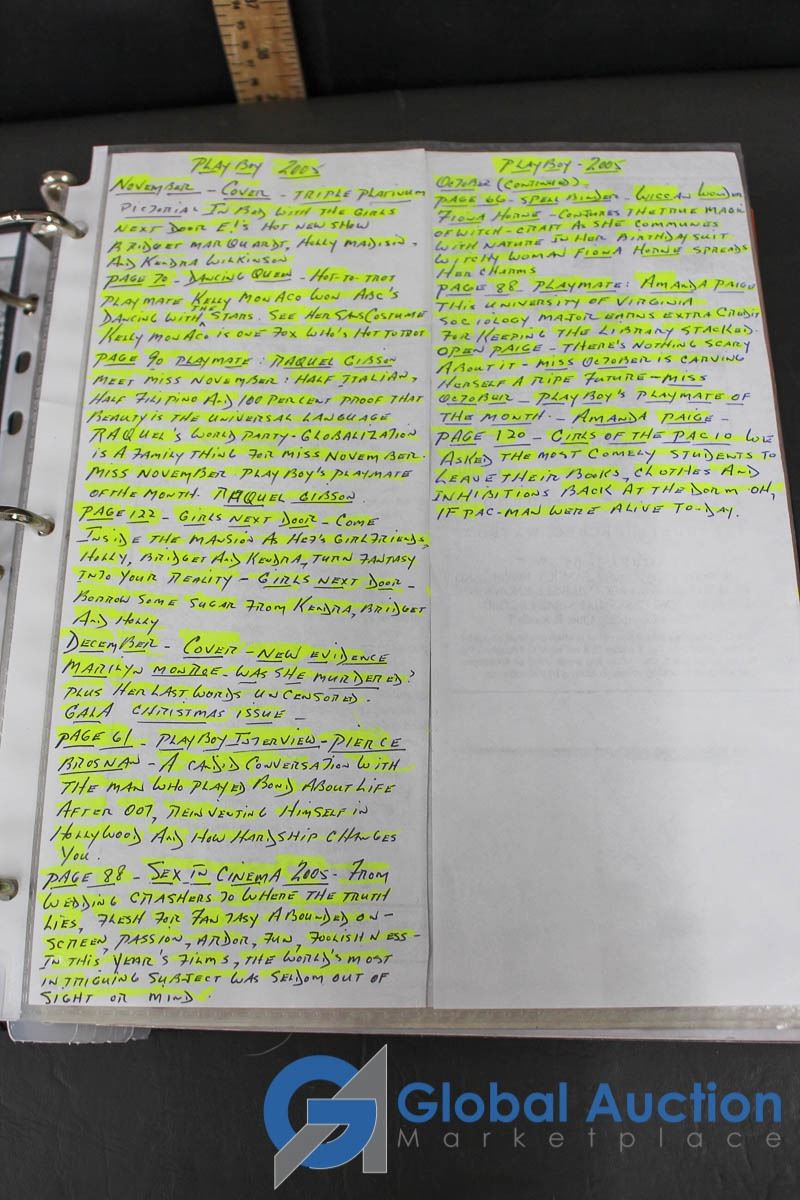 PLAYBOY 2005
NOVEMBER - COVER - TRIPLE PLATINUM
PICTORIAL IN BED WITH THE GIRLS
NEXT DOOR E!'S HOT NEW SHOW
BRIDGET MARQUARDT, HOLLY MADISON,
AND KENDRA WILKINSON
PAGE 70 - DANCING QUEEN - HOT-TO-TROT
PLAYMATE KELLY MONACO WON ABC'S
DANCING WITH THE STARS. SEE HER SANS COSTUME
KELLY MONACO IS ONE FOX WHO'S HOT TO TROT
PAGE 90 PLAYMATE: RAQUEL GIBSON
MEET MISS NOVEMBER: HALF ITALIAN,
HALF FILIPINO AND 100 PERCENT PROOF THAT
BEAUTY IS THE UNIVERSAL LANGUAGE
RAQUEL'S WORLD PARTY - GLOBALIZATION
IS A FAMILY THING FOR MISS NOVEMBER.
MISS NOVEMBER PLAYBOY'S PLAYMATE
OF THE MONTH. RAQUEL GIBSON.
PAGE 122 - GIRLS NEXT DOOR - COME
INSIDE THE MANSION AS HEF'S GIRLFRIENDS,
HOLLY, BRIDGET AND KENDRA, TURN FANTASY
INTO YOUR REALITY - GIRLS NEXT DOOR -
BORROW SOME SUGAR FROM KENDRA, BRIDGET
AND HOLLY
DECEMBER - COVER - NEW EVIDENCE
MARILYN MONROE - WAS SHE MURDERED?
PLUS HER LAST WORDS UNCENSORED.
GALA CHRISTMAS ISSUE -
PAGE 61 - PLAYBOY INTERVIEW - PIERCE
BROSNAN - A CANDID CONVERSATION WITH
THE MAN WHO PLAYED BOND ABOUT LIFE
AFTER 007, REINVENTING HIMSELF IN
HOLLYWOOD AND HOW HARDSHIP CHANGES
YOU.
PAGE 88 - SEX IN CINEMA 2005 - FROM
WEDDING CRASHERS TO WHERE THE TRUTH
LIES, FLESH FOR FANTASY ABOUNDED ON-
SCREEN, PASSION, ARDOR, FUN, FOOLISHNESS -
IN THIS YEAR'S FILMS, THE WORLD'S MOST
INTRIGUING SUBJECT WAS SELDOM OUT OF
SIGHT OR MIND.
PLAYBOY - 2005
OCTOBER (CONTINUED) -
PAGE 66 - SPELL BINDER - WICCAN WONDER
FIONA HORNE - CONJURES THE TRUE MAGIC
OF WITCH-CRAFT AS SHE COMMUNES
WITH NATURE IN HER BIRTHDAY SUIT
WITCHY WOMAN FIONA HORNE SPREADS
HER CHARMS
PAGE 88 PLAYMATE: AMANDA PAIGE
THIS UNIVERSITY OF VIRGINIA
SOCIOLOGY MAJOR EARNS EXTRA CREDIT
FOR KEEPING THE LIBRARY STACKED.
OPEN PAIGE - THERE'S NOTHING SCARY
ABOUT IT - MISS OCTOBER IS CARVING
HERSELF A RIPE FUTURE - MISS
OCTOBER - PLAYBOY'S PLAYMATE OF
THE MONTH. - AMANDA PAIGE -
PAGE 120 - GIRLS OF THE PAC 10 WE
ASKED THE MOST COMELY STUDENTS TO
LEAVE THEIR BOOKS, CLOTHES AND
INHIBITIONS BACK AT THE DORM OH,
IF PAC-MAN WERE ALIVE TO-DAY.
Global Auction
Marketplace